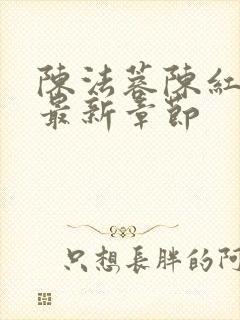 陳法蓉陳紅
最新章節
只想長胖的阿